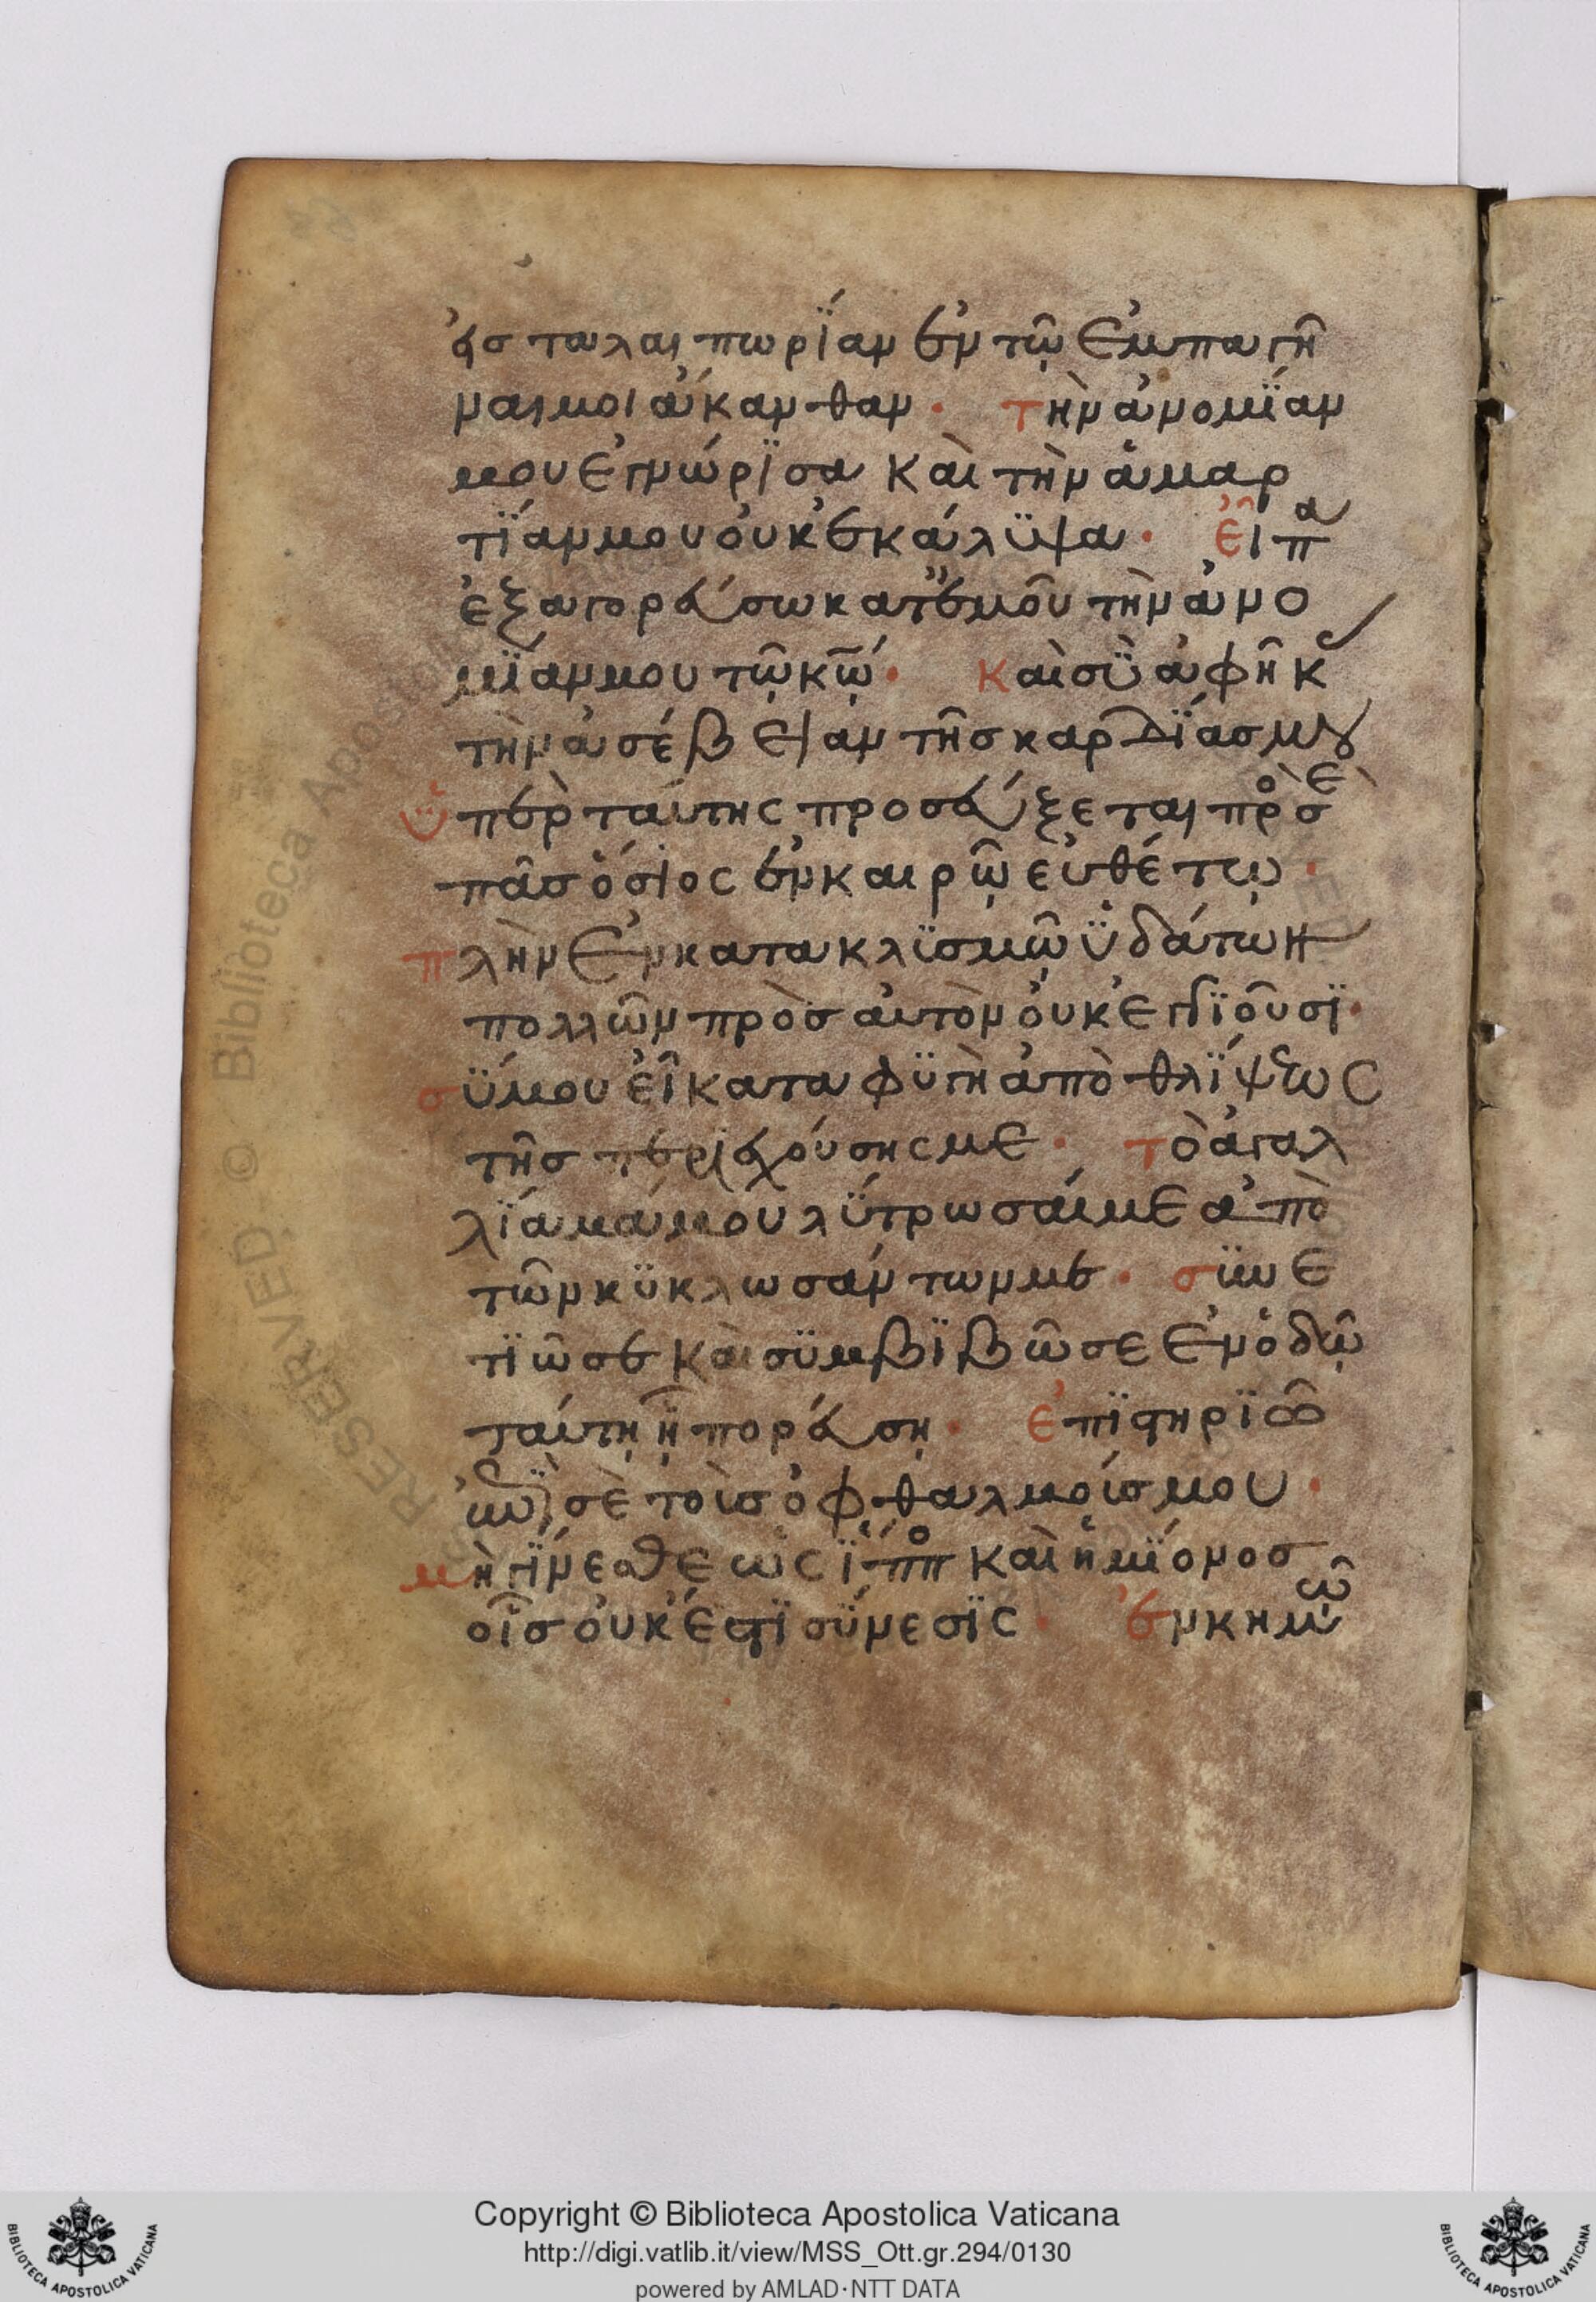 εἰς ταλαιπωρΐαν ἐν τῶ ἐμπαγῆ
ναι μοι ἄκανθαν· τὴν ἀνομΐαν
μου ἐγνώρϊσα καὶ τὴν ἁμαρ
τΐαν μου οὐκ ἐκάλϋψα· εἶπα
ἐξαγορεύσω κατ' ἐμοῦ τὴν ἀνο
μΐαν μου τῶ κω· καὶ σὺ ἀφῆκ
τὴν ἀσέβειαν τῆσ καρδΐασ μου
ὑπὲρ ταύτης προσεύξεται πρὸσ ὲ
πᾶσ ὅσιος ἐν καιρῶ εὐθέτω·
πλὴν ἐν κατακλϋσμῶ ὑδάτων
πολλῶν πρὸσ αὐτὸν οὐκ ἐγγϊοῦσϊ·
σύ μου εἶ καταφϋγὴ ἀπὸ θλΐψεως
τῆσ περιεχούσης με· τὸ ἀγαλ
λΐαμά μου λύτρωσαί με ἀπὸ
τῶν κϋκλωσάντων με· σϋνε
τϊῶ σε καὶ σϋμβϊβῶ σε ἐν ὁδῶ
ταύτη ἧ πορεύση· ἐπϊστηρϊῶ
ἐπὶ σὲ τοὺσ ὀφθαλμούσ μου·
μὴ γΐνεσθε ὡς ἵππο καὶ ἡμΐονοσ
οἷσ οὐκ ἔστϊ σύνεσϊς· ἐν κημῶ
Copyright © Biblioteca Apostolica Vaticana
http://digi.vatlib.it/view/MSS_Ott.gr.294/0130
powered by AMLAD·NTT DATA